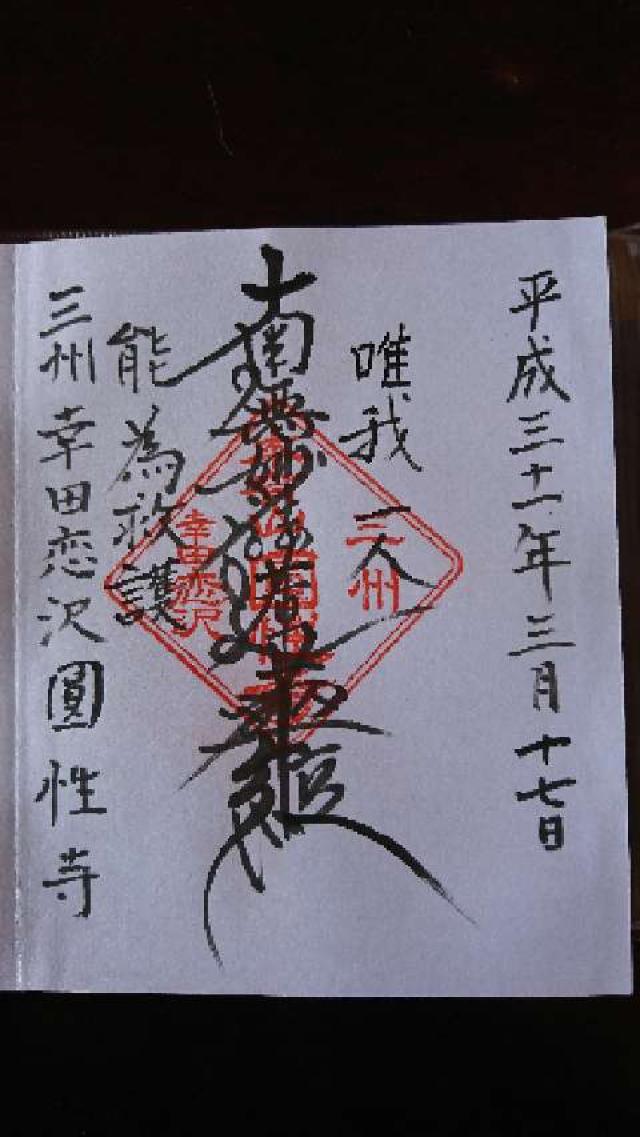 平成三十一年三月十七日
唯我一人
三州
南無妙法蓮華経
幸田恋沢
能為救護
三州幸田恋沢圓性寺